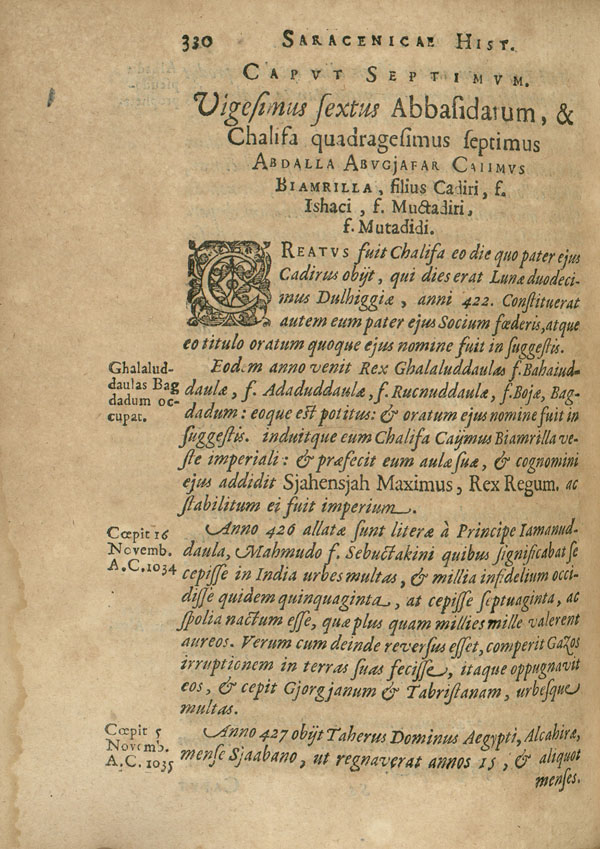 330 SARACENICAE HIST.
CAPVT SEPTIMVM.
Vigesimus sextus Abbasidarum, &
Chalifa quadragesimus septimus
ABDALLA ABVGJAFAR CAIIMVS
BIAMRILLA, filius Cadiri, f.
Ishaci, f. Muctadiri,
f. Mutadidi.
CREATVS fuit Chalifa eo die quo pater ejus
Cadirus obijt, qui dies erat Lunæ duodeci-
mus Dulhiggiæ, anni 422. Constituerat
autem eum pater ejus Socium fœderis, atque
eo titulo oratum quoque ejus nomine fuit in suggestis.
Ghalalud-
daulas Bag
dadum oc-
cupat.
Eodem anno venit Rex Ghalaluddaulas f. Bahaiud-
daulæ, f. Adaduddaulæ, f. Rucnuddaulæ, f. Bojæ, Bag-
dadum: eoque est potitus: & oratum ejus nomine fuit in
suggestis. induitque eum Chalifa Caijmus Biamrilla ve-
ste imperiali: & præfecit eum aulæ suæ, & cognomini
ejus addidit Sjahensjah Maximus, Rex Regum. ac
stabilitum ei fuit imperium.
Cœpit 16
Novemb.
A.C. 1034
Anno 426 allatæ sunt literæ à Principe Iamanud-
daula, Mahmudo f. Sebuctakini quibus significabat se
cepisse in India urbes multas, & millia infidelium occi-
disse quidem quinquaginta, at cepisse septuaginta, ac
spolia nactum esse, quæ plus quam millies mille valerent
aureos. Verum cum deinde reversus esset, comperit Gazos
irruptionem in terras suas fecisse, itaque oppugnavit
eos, & cepit Gjorgjanum & Tabristanam, urbesque
multas.
Cœpit 5
Novemb.
A.C. 1035
Anno 427 obijt Taherus Dominus Aegypti, Alcahiræ,
mense Sjaabano, ut regnaverat annos 15, & aliquot
menses.